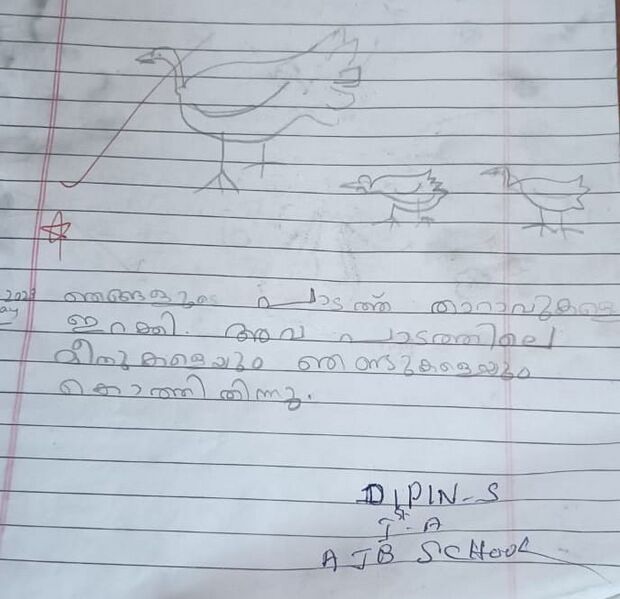 2023
ay
ഞങ്ങളുടെ പാടത്ത് താറാവുകളെ
ഇറക്കി. അവ പാടത്തിലെ
മീനുകളെയും ഞണ്ടുകളെയും
കൊത്തി തിന്നു.
DIPIN-S
Ist-A
AJB SCHOOL